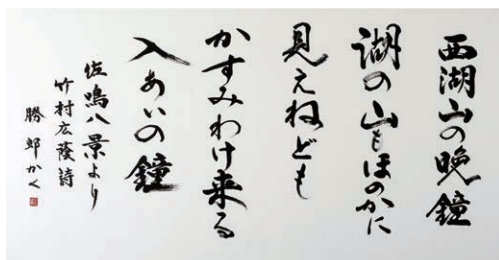 西湖山の晩鐘
湖の山もほのかに
見えねども
かすみわけ来る
入あいの鐘
佐鳴八景より
竹村広蔭詩
勝邦かく